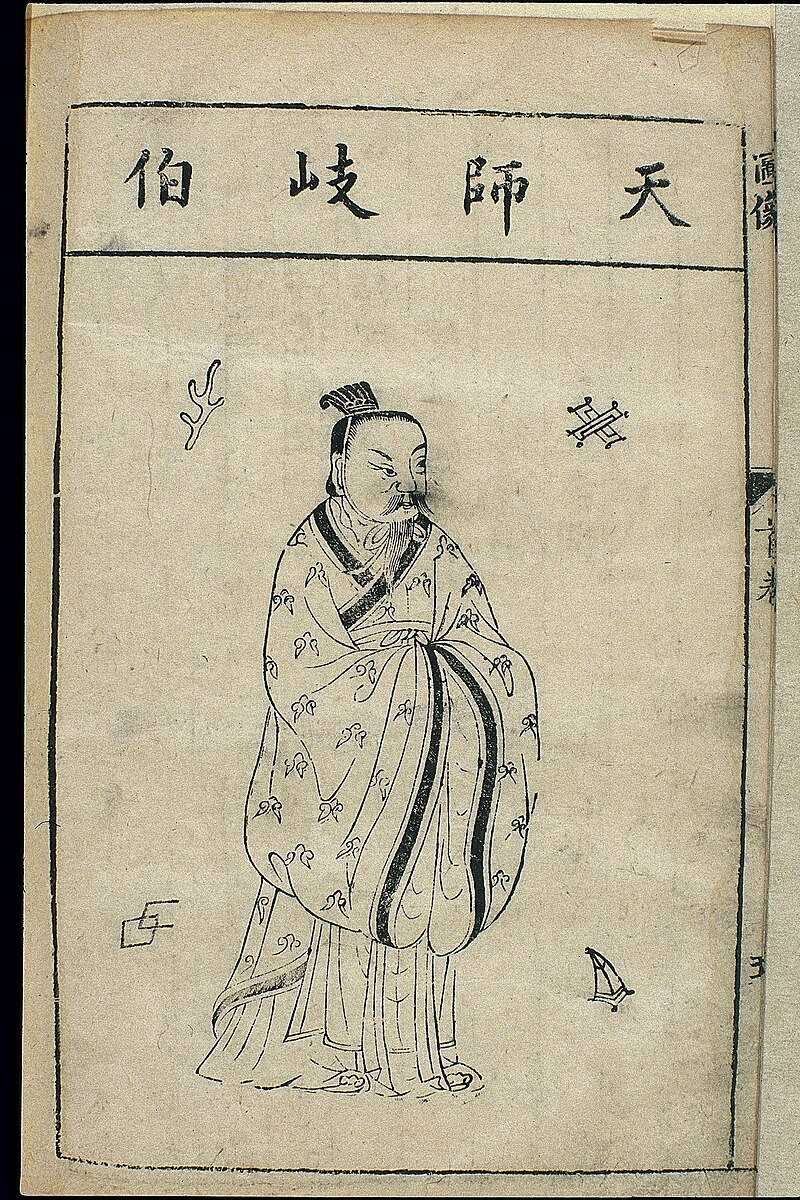 天師岐伯
圖像
首卷